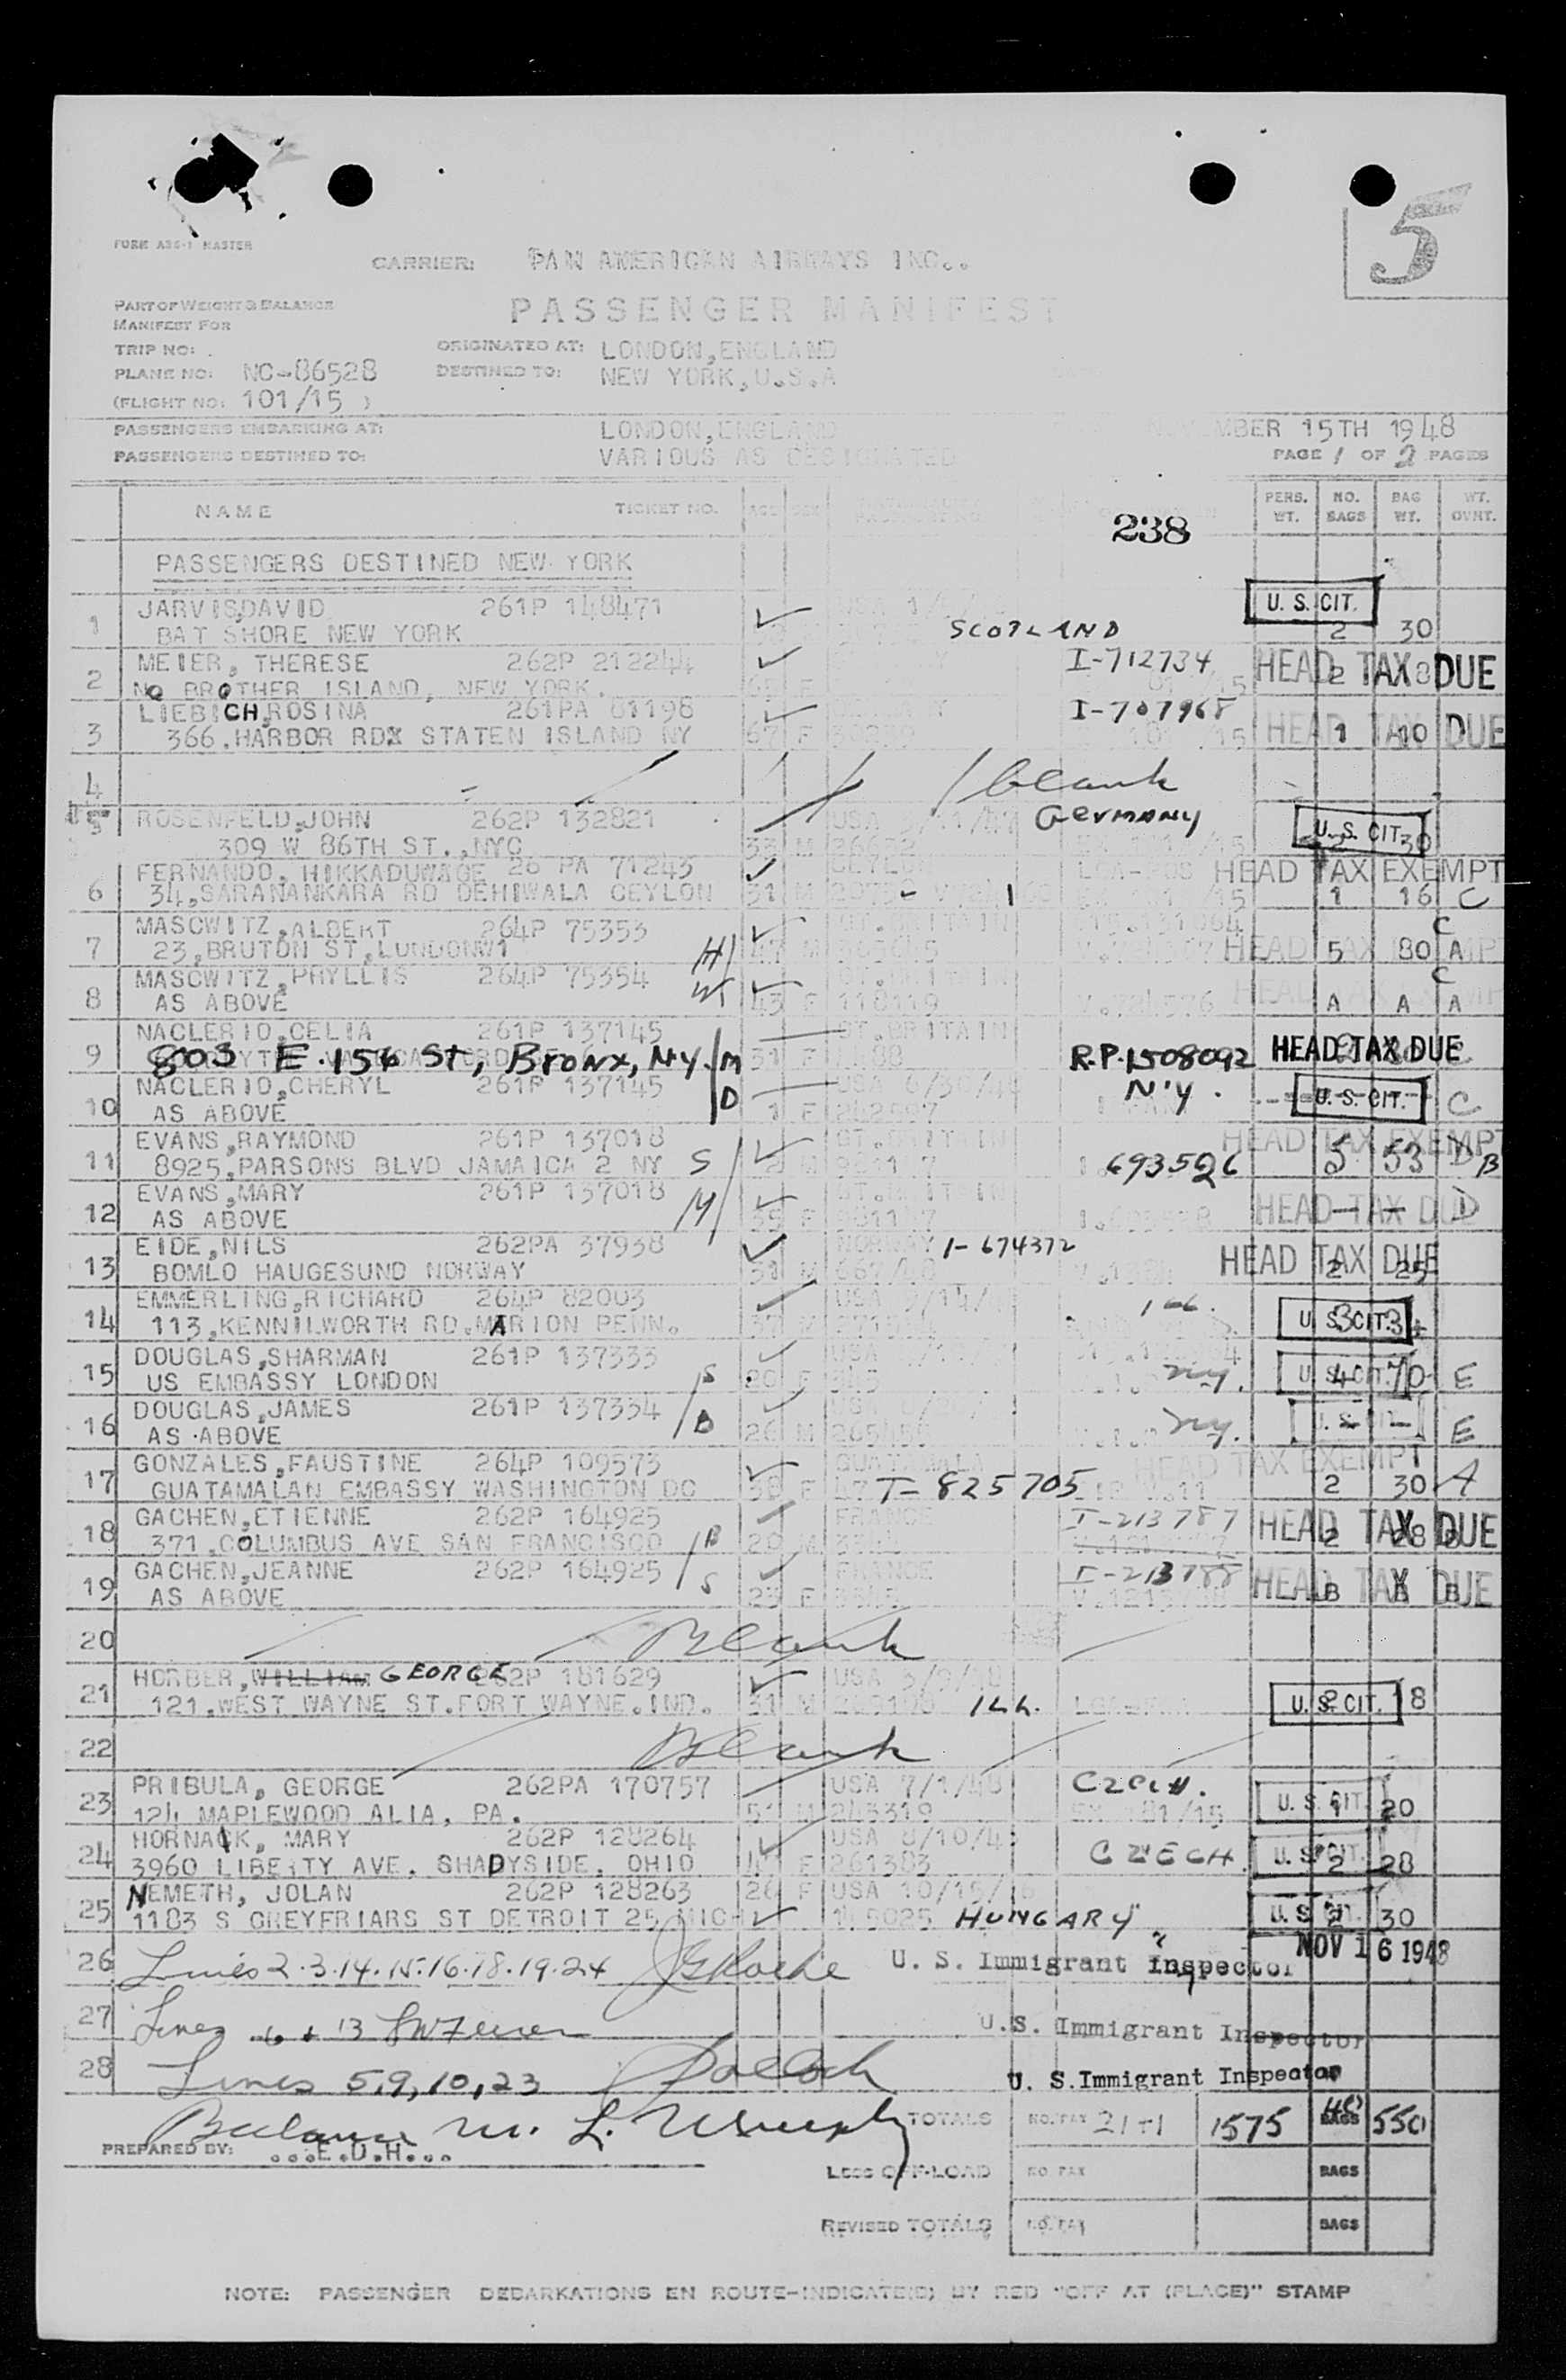 5
FORM ASS-1 MASTER
CARRIER: PAN AMERICAN AIRWAYS INC..
PART OF WEIGHT & BALANCE
MANIFEST FOR
PASSENGER MANIFEST
TRIP NO:
ORIGINATED AT: LONDON,ENGLAND
PLANE NO: NC-86528
DESTINED TO: NEW YORK,U.S.A
(FLIGHT NO: 101/15 )
PASSENGERS EMBARKING AT: LONDON,ENGLAND NOVEMBER 15TH 1948
PASSENGERS DESTINED TO: VARIOUS AS DESIGNATED PAGE 1 OF 2 PAGES
NAME TICKET NO. AGE SEX 238 PERS. WT. NO. BAGS BAG WT. WT. OVHT.
PASSENGERS DESTINED NEW YORK
1 JARVIS,DAVID 261P 148471 U. S. CIT.
BAT SHORE NEW YORK SCOTLAND 2 30
2 MEIER, THERESE 262P 212244 I-712734 HEAD TAX DUE 2
NO BROTHER ISLAND, NEW YORK.
3 LIEBICH,ROSINA 261PA 81198 I-707968 HEAD TAX DUE
366,HARBOR RDX STATEN ISLAND NY 67 F 1 10
4 blank
5 ROSENFELD,JOHN 262P 132821 USA Germany U. S. CIT.
309 W 86TH ST.,NYC 33 M 30
6 FERNANDO, HIKKADUWAGE 26 PA 71243 CEYLON HEAD TAX EXEMPT
34,SARANANKARA RD DEHIWALA CEYLON 31 M 1 16 C
7 MASCWITZ,ALBERT 264P 75353 GT.BRITAIN C
23,BRUTON ST,LONDONW1 H 47 M HEAD TAX EXEMPT 5 80 A
8 MASCWITZ,PHYLLIS 264P 75354 GT.BRITAIN C
AS ABOVE W 43 F 118119 V.724576 A A A
9 NACLERIO,CELIA 261P 137145 GT.BRITAIN HEAD TAX DUE
803 E. 156 St, Bronx, NY. M 31 F R.P.1508092
10 NACLERIO,CHERYL 261P 137145 USA 6/30/4 N.Y. U. S. CIT.
AS ABOVE D 1 F C
11 EVANS,RAYMOND 261P 137018 GT.BRITAIN HEAD TAX EXEMPT
8925,PARSONS BLVD JAMAICA 2 NY S M 693526 5 53 D B
12 EVANS,MARY 261P 137018 GT.BRITAIN
AS ABOVE M 35 F HEAD TAX DUE D
13 EIDE,NILS 262PA 37938 NORWAY I-674372 HEAD TAX DUE
BOMLO HAUGESUND NORWAY 31 M 2 25
14 EMMERLING,RICHARD 264P 82003 USA Ill. U. S. CIT.
113,KENNILWORTH RD.MARION PENN. 37 M 3 34
15 DOUGLAS,SHARMAN 261P 137333 USA U. S. CIT.
US EMBASSY LONDON S 20 F NY. 4 70 E
16 DOUGLAS,JAMES 261P 137334 USA U. S. CIT.
AS ABOVE B 26 M NY. E
17 GONZALES,FAUSTINE 264P 109573 GUATAMALA HEAD TAX EXEMPT
GUATAMALAN EMBASSY WASHINGTON DC F T-825705 2 30 A
18 GACHEN,ETIENNE 262P 164925 FRANCE I-213787 HEAD TAX DUE
371,COLUMBUS AVE SAN FRANCISCO B 20 M 2 28 B
19 GACHEN,JEANNE 262P 164925 FRANCE I-213788 HEAD TAX DUE
AS ABOVE S 23 F B B B
20 Blank
21 HORBER,WILLIAM GEORGE 262P 181629 USA 3/9/48
121,WEST WAYNE ST.FORT WAYNE.IND. 31 M ILL. U. S. CIT. 18
22 Blank
23 PRIBULA, GEORGE 262PA 170757 USA 7/1/48 CZECH. U. S. CIT.
124 MAPLEWOOD ALIA, PA. 51 M 243319 1 20
24 HORNACK, MARY 262P 128264 USA 8/10/4 CZECH. U. S. CIT.
3960 LIBERTY AVE, SHADYSIDE, OHIO F 261383 2 28
25 NEMETH, JOLAN 262P 128263 26 F USA 10/15/
1183 S GREYFRIARS ST DETROIT 25 MICH HUNGARY U. S. CIT. 2 30
26 Lines 2.3.14.15.16.18.19.24 JG Roche U. S. Immigrant Inspector NOV 16 1948
27 Lines 6 + 13 U.S. Immigrant Inspector
28 Lines 5,9,10,23 U. S.Immigrant Inspector
Balance M. L. Murphy
TOTALS NO. PAX 21+1 1575 BAGS 550
PREPARED BY: ...E.D.H...
LESS OFF-LOAD NO PAX BAGS
REVISED TOTALS NO. PAX BAGS
NOTE: PASSENGER DEBARKATIONS EN ROUTE-INDICATE(S) BY RED "OFF AT (PLACE)" STAMP